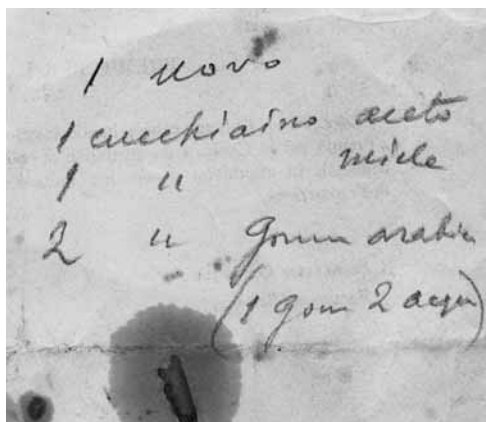 1 uovo
1 cucchiaino aceto
1 " miele
2 " Gomm arabic
(1 gom 2 acqu)